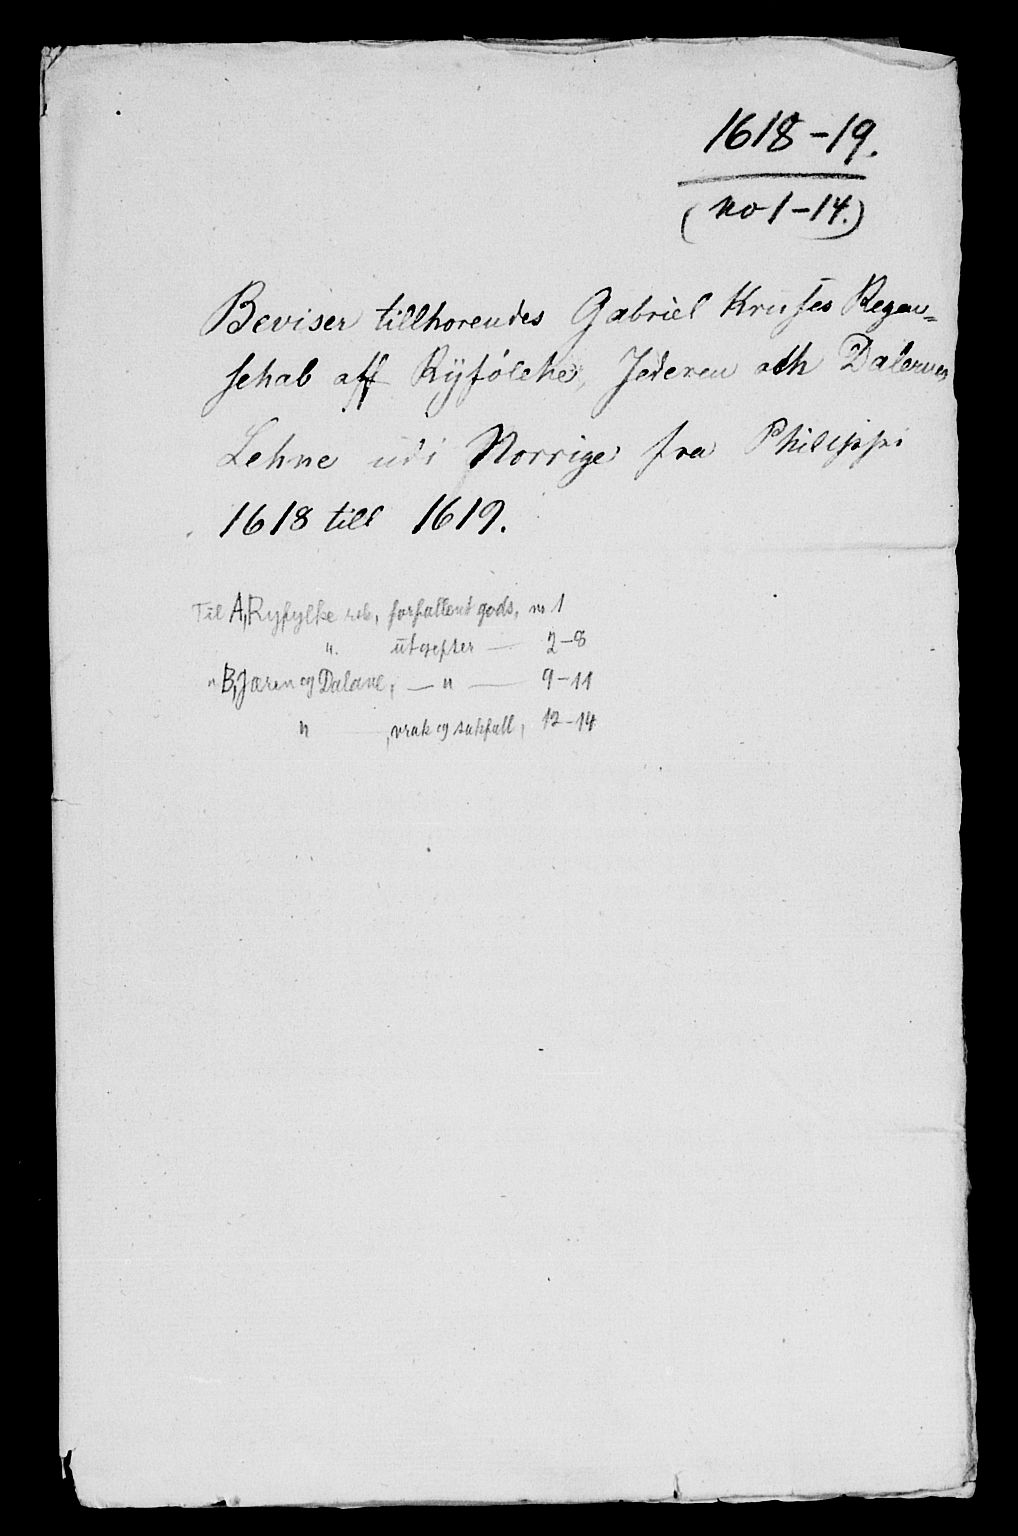 1618-19.
(no 1-14.)
Beviser tillhorendes Gabriel Kruses Regen=
schab aff Ryfölche, Jederen och Dalernes
Lehne udi Norrige fra Philippi
1618 till 1619.
Til A, Ryfylke rek, forfallent gods, no 1
" utgifter — 2-8
" B, Jæren og Dalane, — " — 9-11
" , vrak og sakfall, 12-14